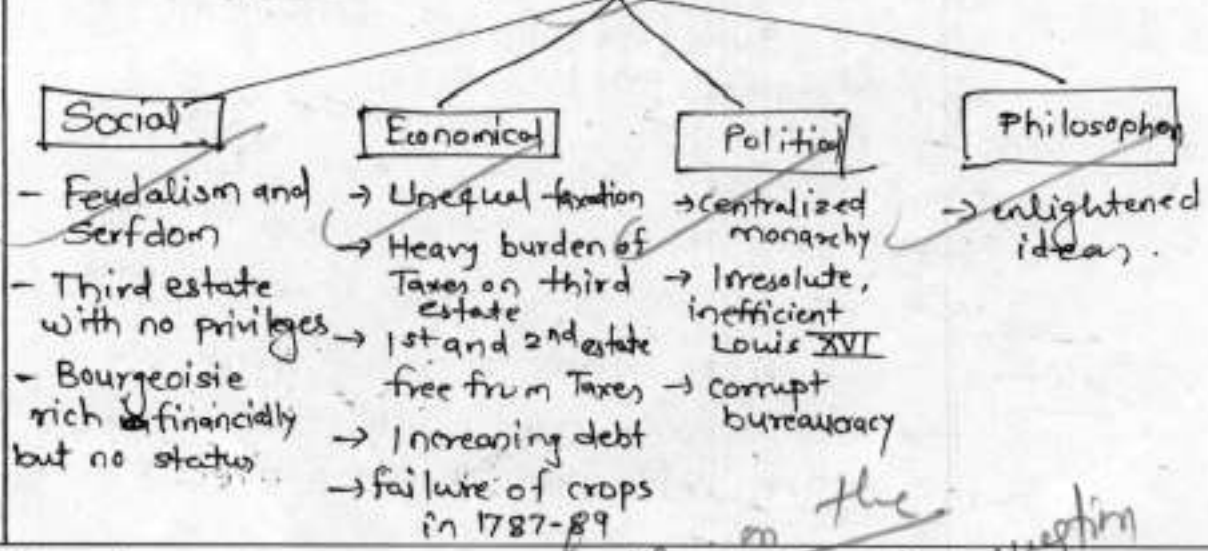 Social
- Feudalism and
Serfdom
- Third estate
with no privileges
- Bourgeoisie
rich financially
but no status
Economical
→ Unequal taxation
→ Heavy burden of
Taxes on third
estate
→ 1st and 2nd estate
free from Taxes
→ Increasing debt
→ failure of crops
in 1787-89
Political
→ centralized
monarchy
→ Irresolute,
inefficient
Louis XVI
→ corrupt
bureaucracy
Philosopher
→ enlightened
ideas.
on the